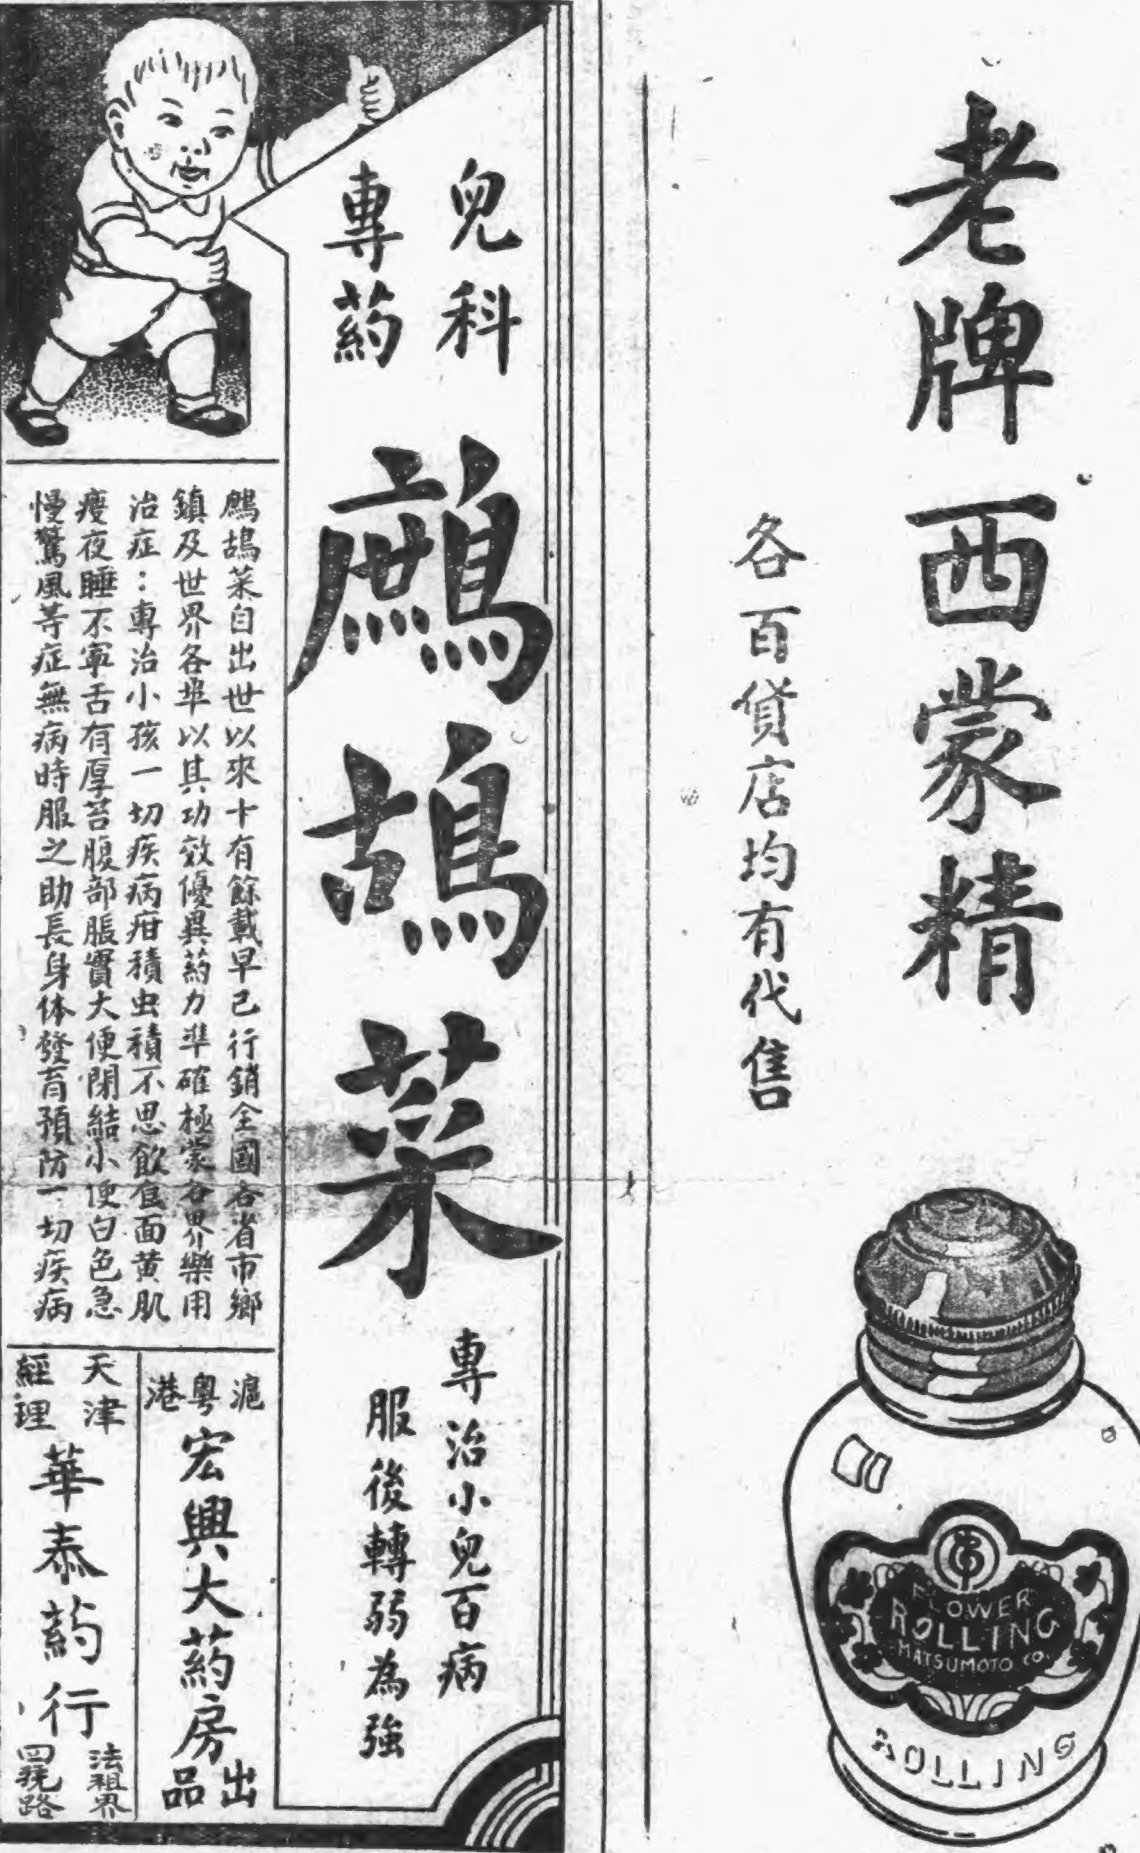 老牌西蒙精
各百貨店均有代售
FLOWER
ROLLING
MATSUMOTO CO.
ROLLING
兒科
專葯
鷓鴣菜
專治小兒百病
服後轉弱為強
鷓鴣菜自出世以來十有餘載早已行銷全國各省市鄉
鎮及世界各埠以其功效優異葯力準確極蒙各界樂用
治症：專治小孩一切疾病疳積虫積不思飲食面黄肌
瘦夜睡不寧舌有厚苔腹部脹實大便閉結小便白色急
慢驚風等症無病時服之助長身体發育預防一切疾病
滬粵港
宏興大葯房
出品
天津
經理
華泰葯行
法租界
四號路